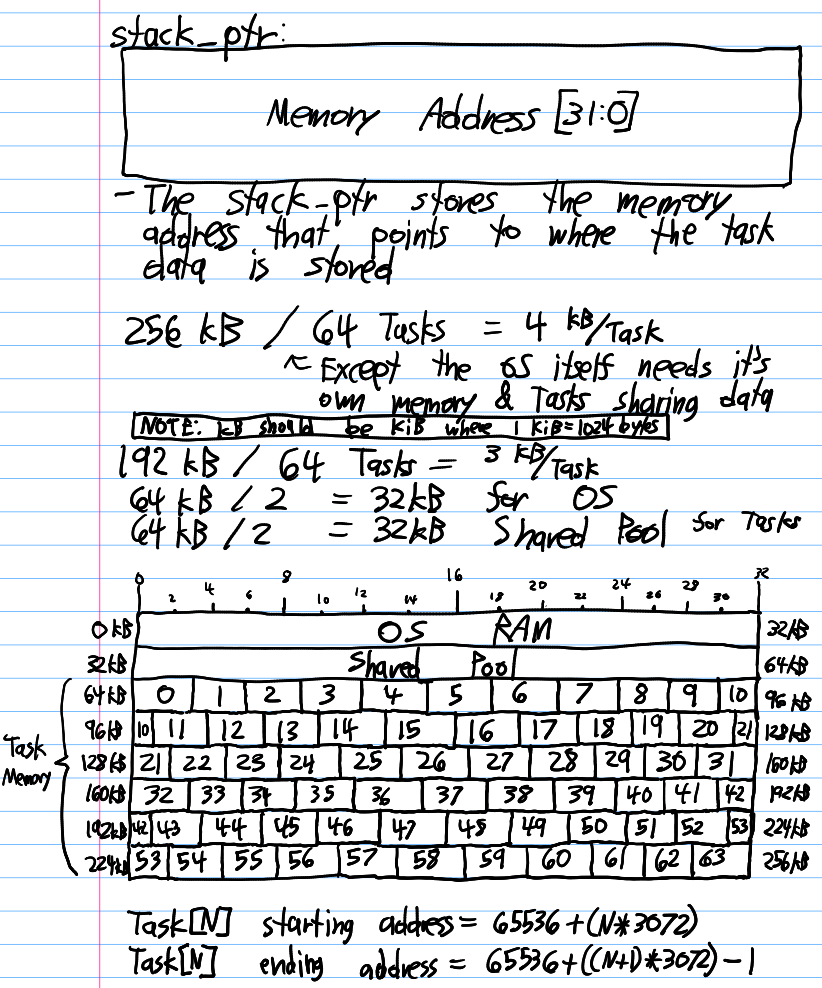 stack_ptr:
Memory Address [31:0]
- The stack_ptr stores the memory
address that points to where the task
data is stored
256 kB / 64 Tasks = 4 kB/Task
↖ Except the OS itself needs it's
own memory & Tasks sharing data
NOTE: kB should be KiB where 1 KiB=1024 bytes
192 kB / 64 Tasks = 3 kB/Task
64 kB / 2 = 32kB for OS
64 kB / 2 = 32kB Shared Pool for Tasks
0 2 4 6 8 10 12 14 16 18 20 22 24 26 28 30 32
0 kB OS RAM 32kB
32kB Shared Pool 64kB
Task Memory
64kB 0 1 2 3 4 5 6 7 8 9 10 96kB
96kB 10 11 12 13 14 15 16 17 18 19 20 21 128kB
128kB 21 22 23 24 25 26 27 28 29 30 31 160kB
160kB 32 33 34 35 36 37 38 39 40 41 42 192kB
192kB 42 43 44 45 46 47 48 49 50 51 52 53 224kB
224kB 53 54 55 56 57 58 59 60 61 62 63 256kB
Task[N] starting address = 65536+(N*3072)
Task[N] ending address = 65536+((N+1)*3072)-1